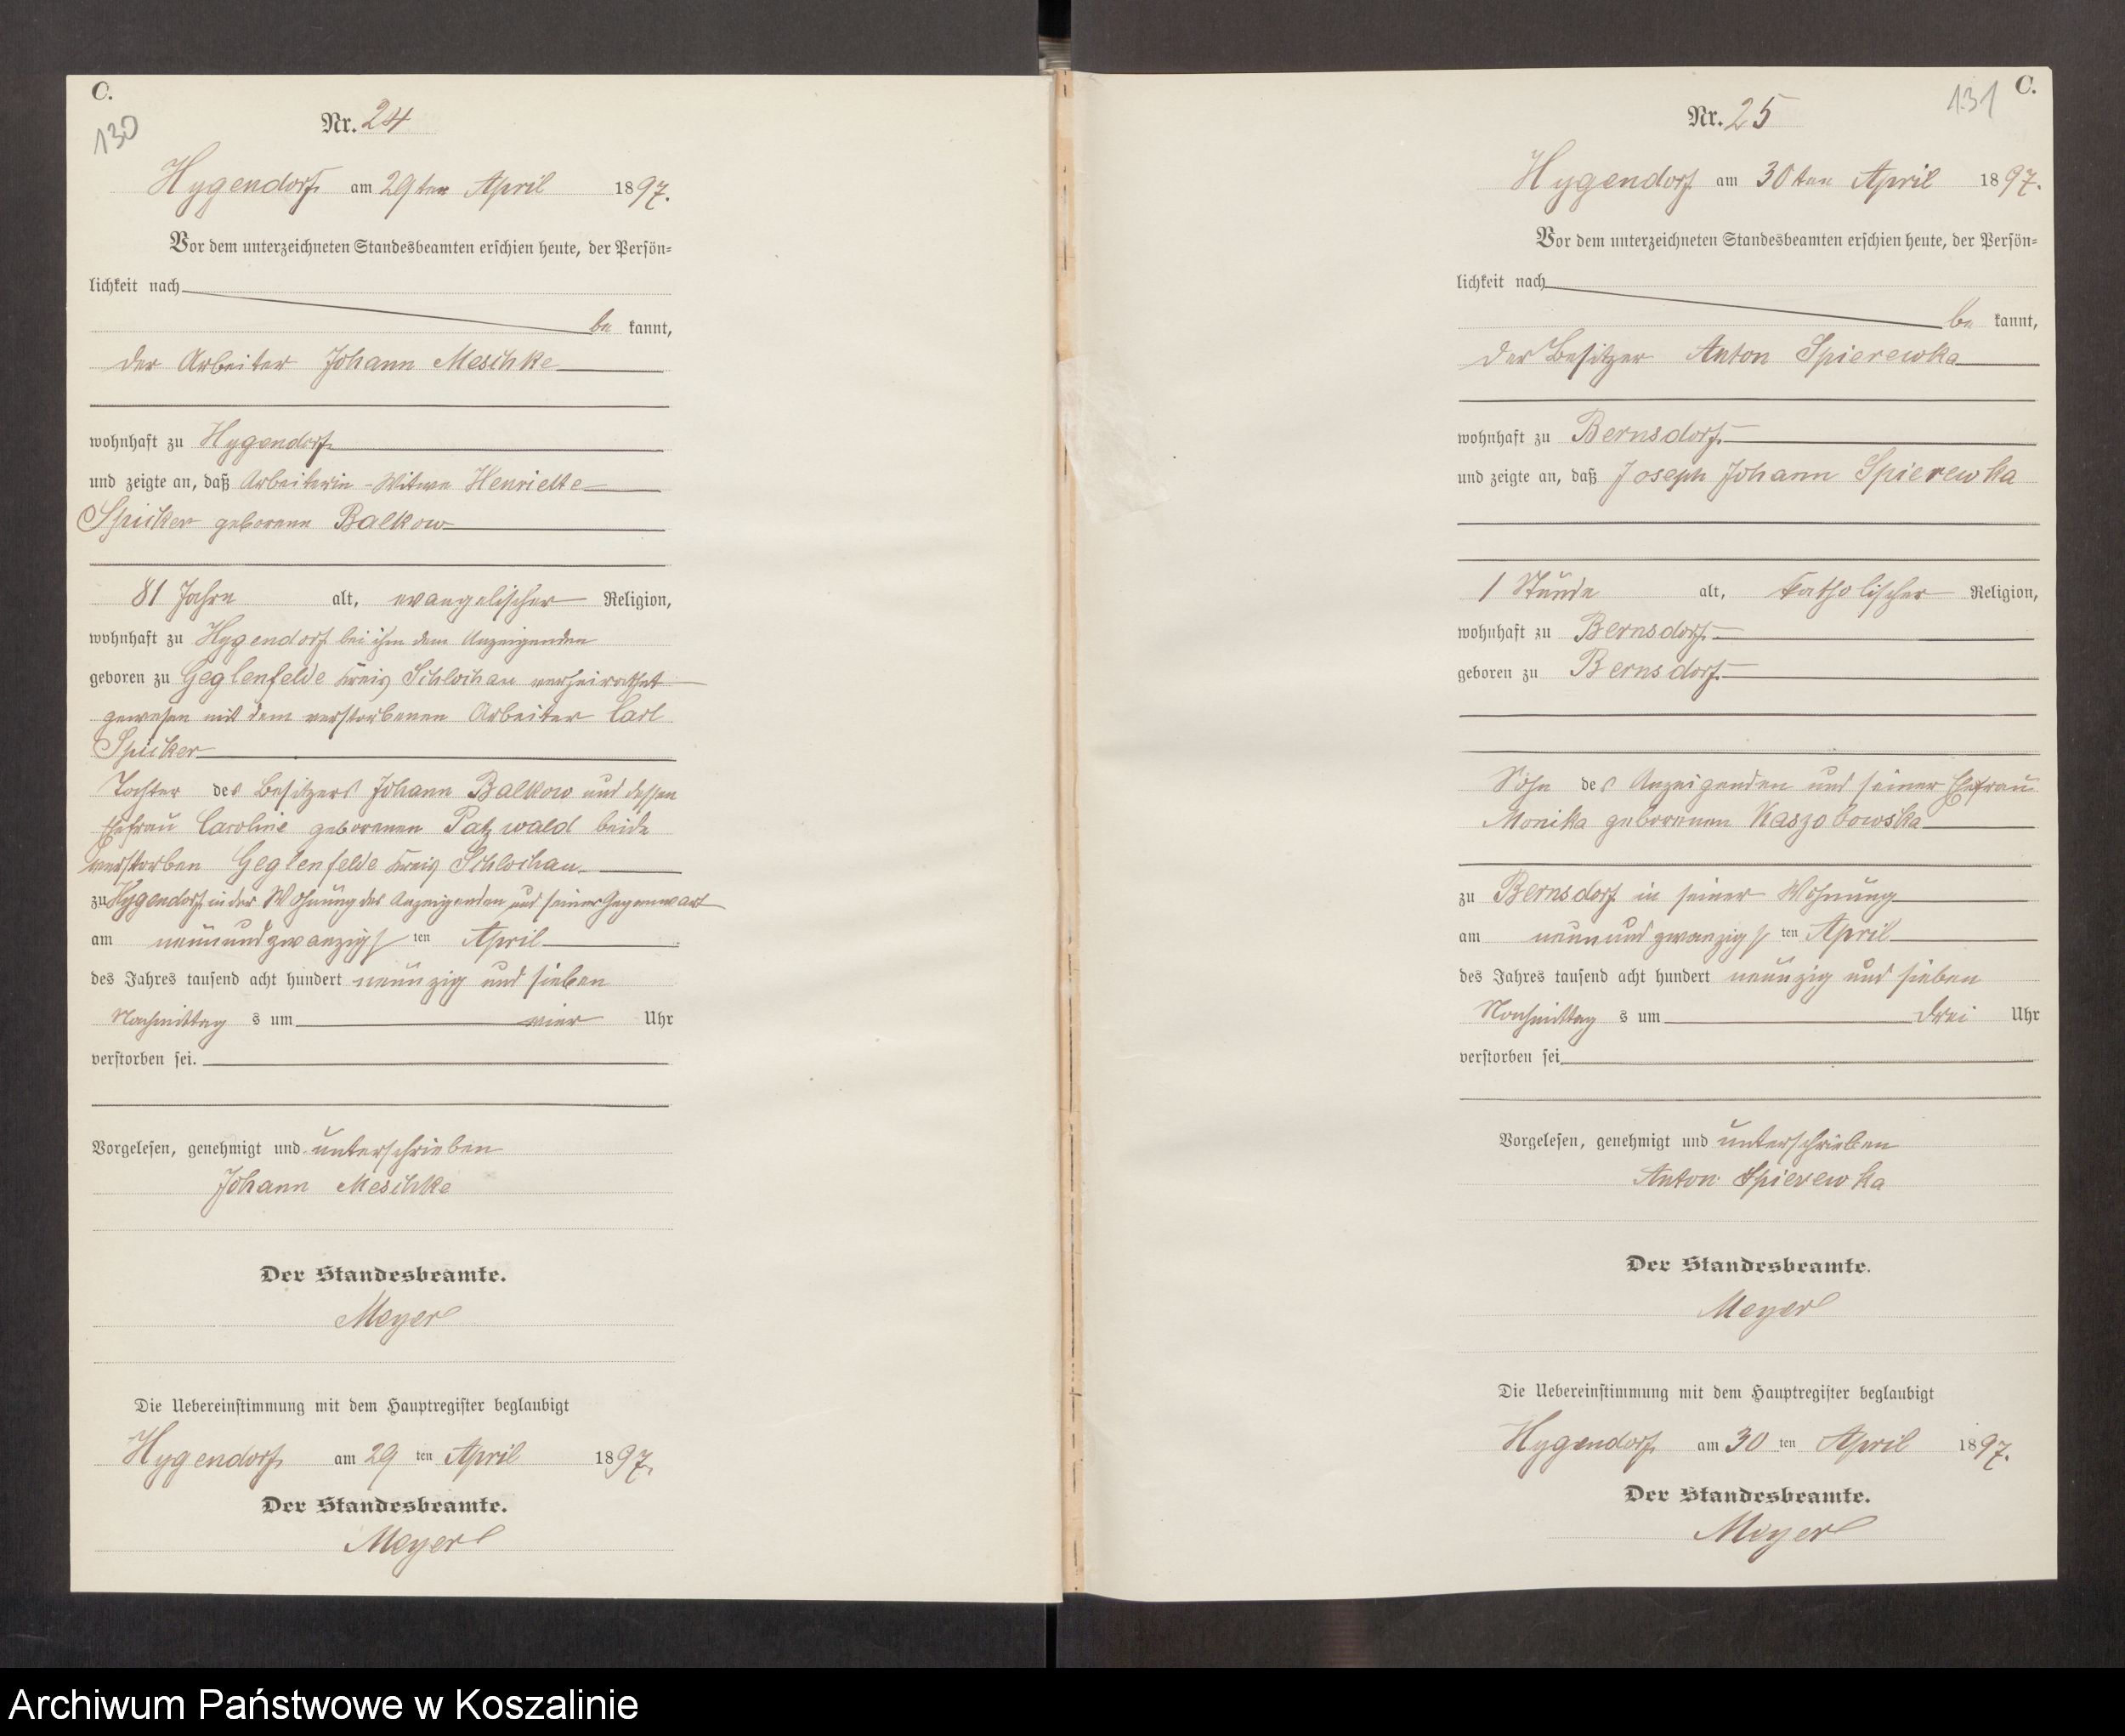 C.
130
Nr. 24
Hygendorf am 29ten April 1897.
Vor dem unterzeichneten Standesbeamten erschien heute, der Persön-
lichkeit nach
be kannt,
der Arbeiter Johann Meschke
wohnhaft zu Hygendorf
und zeigte an, daß Arbeiterin-Witwe Henriette
Spicker geborene Balkow
81 Jahre alt, evangelischer Religion,
wohnhaft zu Hygendorf bei ihm dem Anzeigenden
geboren zu Geglenfelde Kreis Schlochau verheirathet
gewesen mit dem verstorbenen Arbeiter Carl
Spicker
Tochter des Besitzers Johann Balkow und dessen
Ehefrau Caroline geborenen Patzwald beide
verstorben Geglenfelde Kreis Schlochau.
zu Hygendorf in der Wohnung des Anzeigenden und seiner Gegenwart
am neunundzwanzigsten April
des Jahres tausend acht hundert neunzig und sieben
Nachmittag s um vier Uhr
verstorben sei.
Vorgelesen, genehmigt und unterschrieben
Johann Meschke
Der Standesbeamte.
Meyer
Die Uebereinstimmung mit dem Hauptregister beglaubigt
Hygendorf am 29 ten April 1897.
Der Standesbeamte.
Meyer
131 C.
Nr. 25
Hygendorf am 30ten April 1897.
Vor dem unterzeichneten Standesbeamten erschien heute, der Persön-
lichkeit nach
be kannt,
der Besitzer Anton Spierewka
wohnhaft zu Bernsdorf
und zeigte an, daß Joseph Johann Spierewka
1 Stunde alt, katholischer Religion,
wohnhaft zu Bernsdorf
geboren zu Bernsdorf
Sohn des Anzeigenden und seiner Ehefrau
Monika geborenen Kaszobowska
zu Bernsdorf in seiner Wohnung
am neunundzwanzigsten April
des Jahres tausend acht hundert neunzig und sieben
Nachmittag s um drei Uhr
verstorben sei
Vorgelesen, genehmigt und unterschrieben
Anton Spierewka
Der Standesbeamte.
Meyer
Die Uebereinstimmung mit dem Hauptregister beglaubigt
Hygendorf am 30 ten April 1897.
Der Standesbeamte.
Meyer
Archiwum Państwowe w Koszalinie